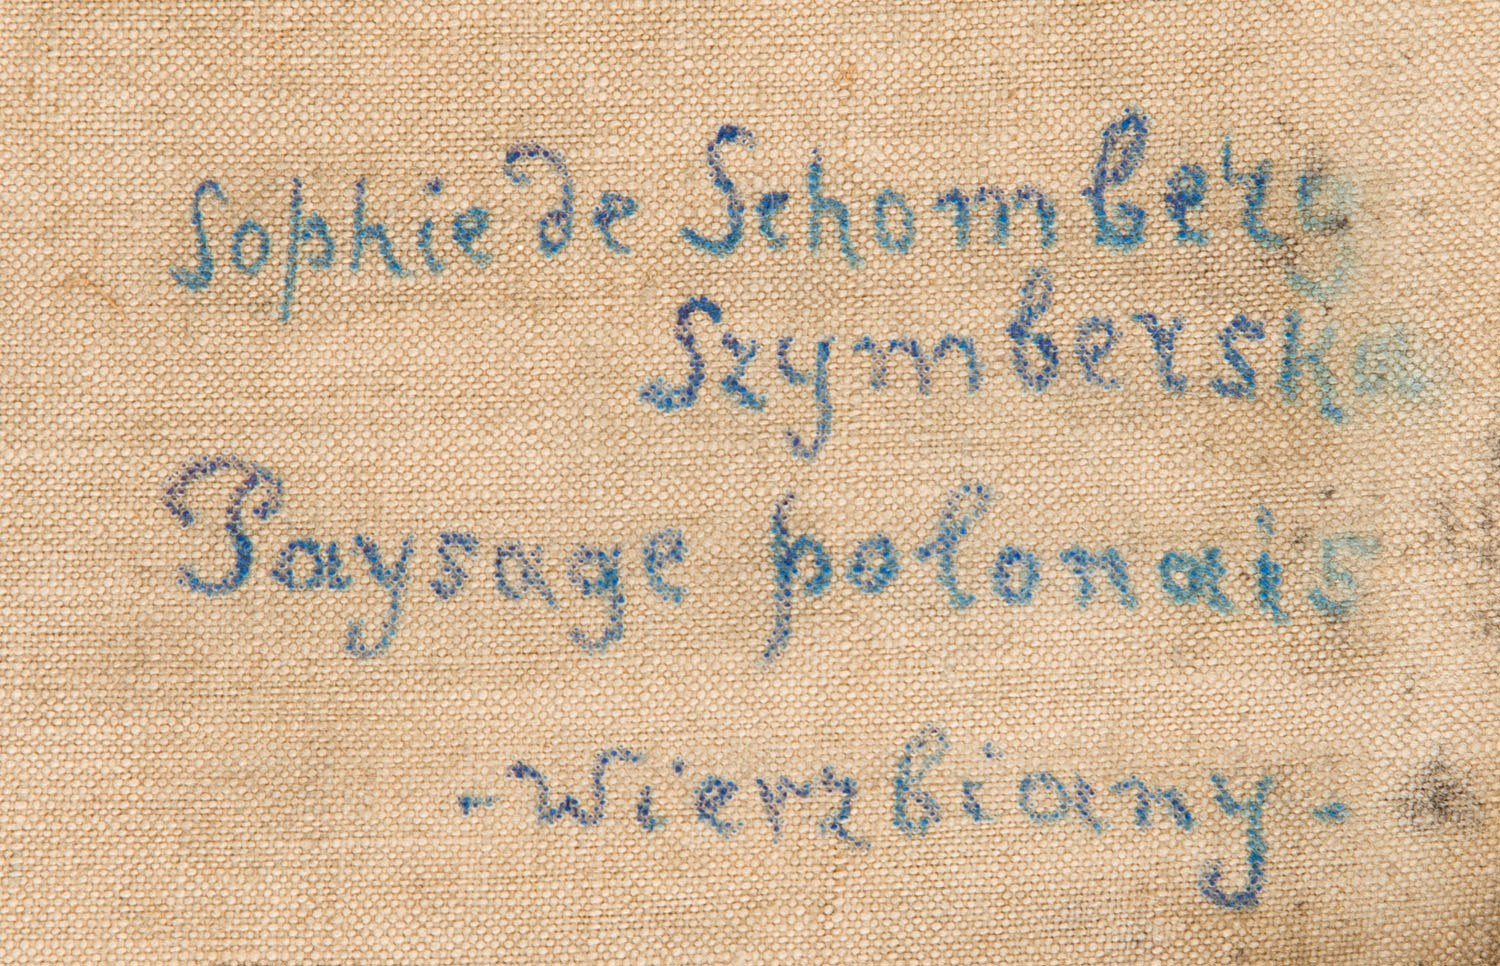 Sophie de Schomberg
Szymberska
Paysage polonais
- Wierzbiany -